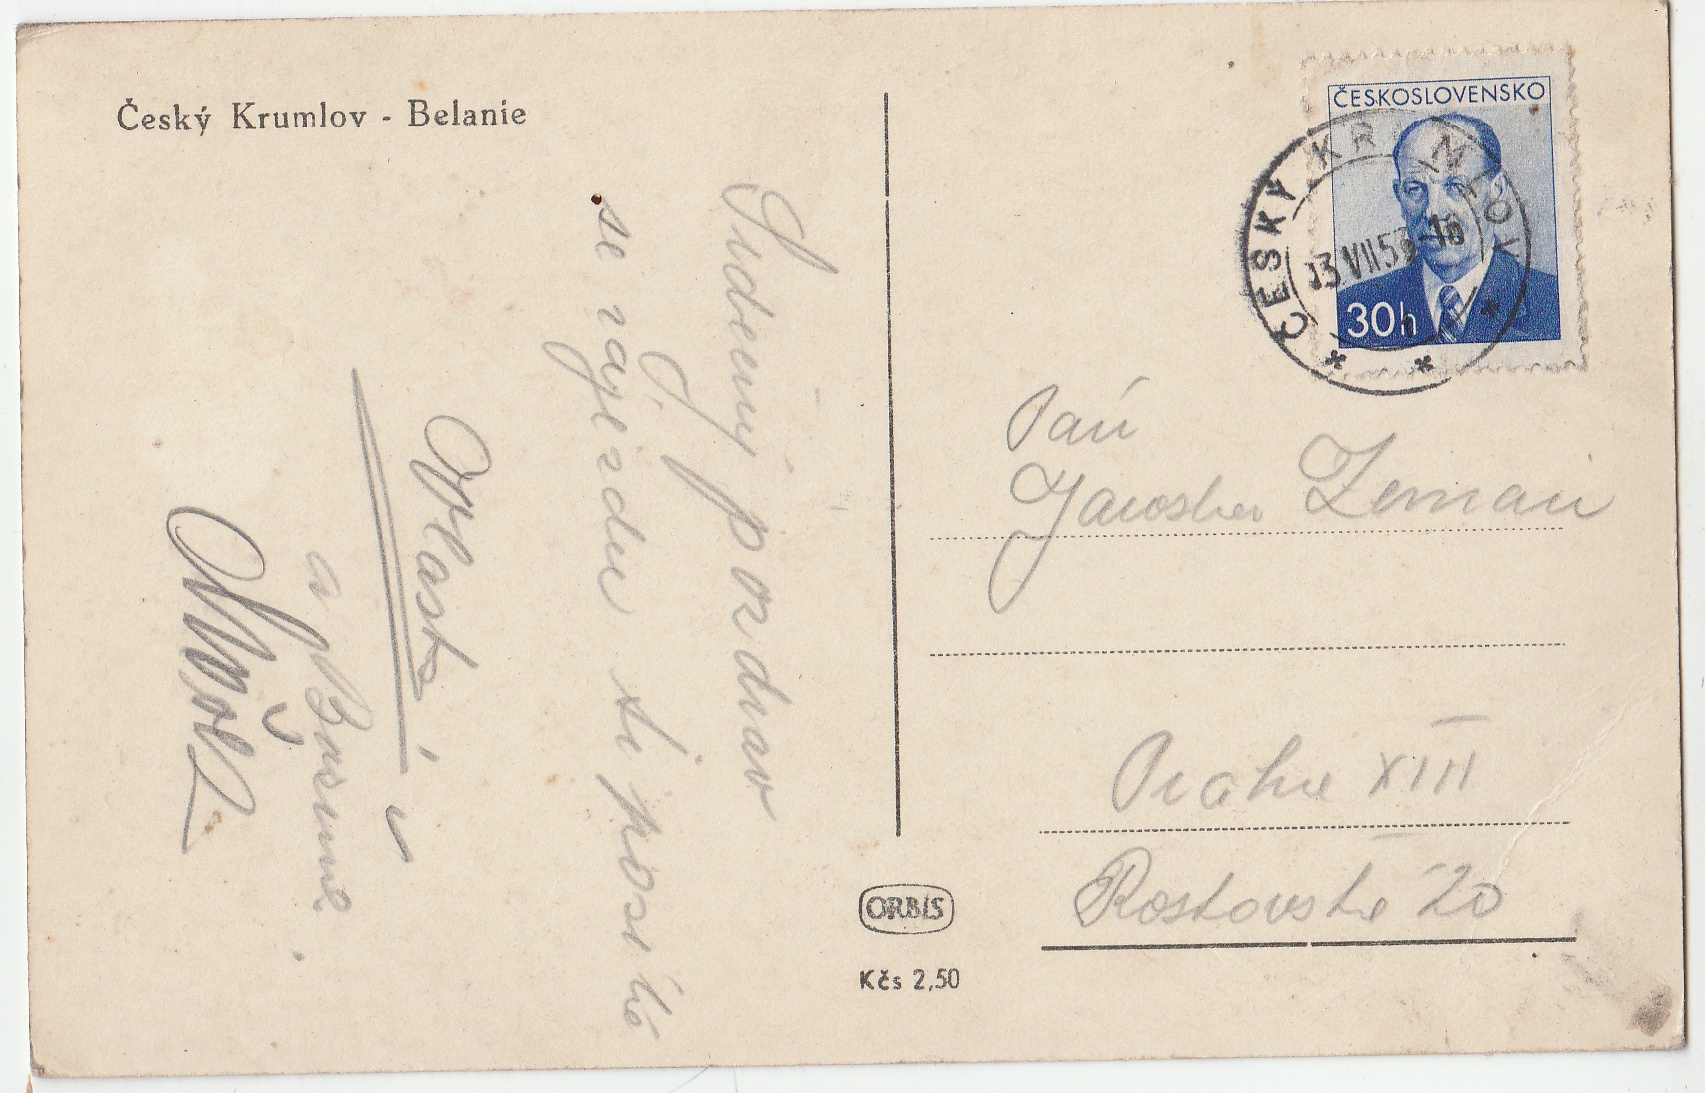 Český Krumlov - Belanie
Srdečný pozdrav
se zájezdu si posílá
Vlasta
a
ČESKOSLOVENSKO
30h
ČESKÝ KRUMLOV
13.VII.53-18
Paní
Jaroslav Zeman
Praha XIII
Rostovská 20
ORBIS
Kčs 2,50